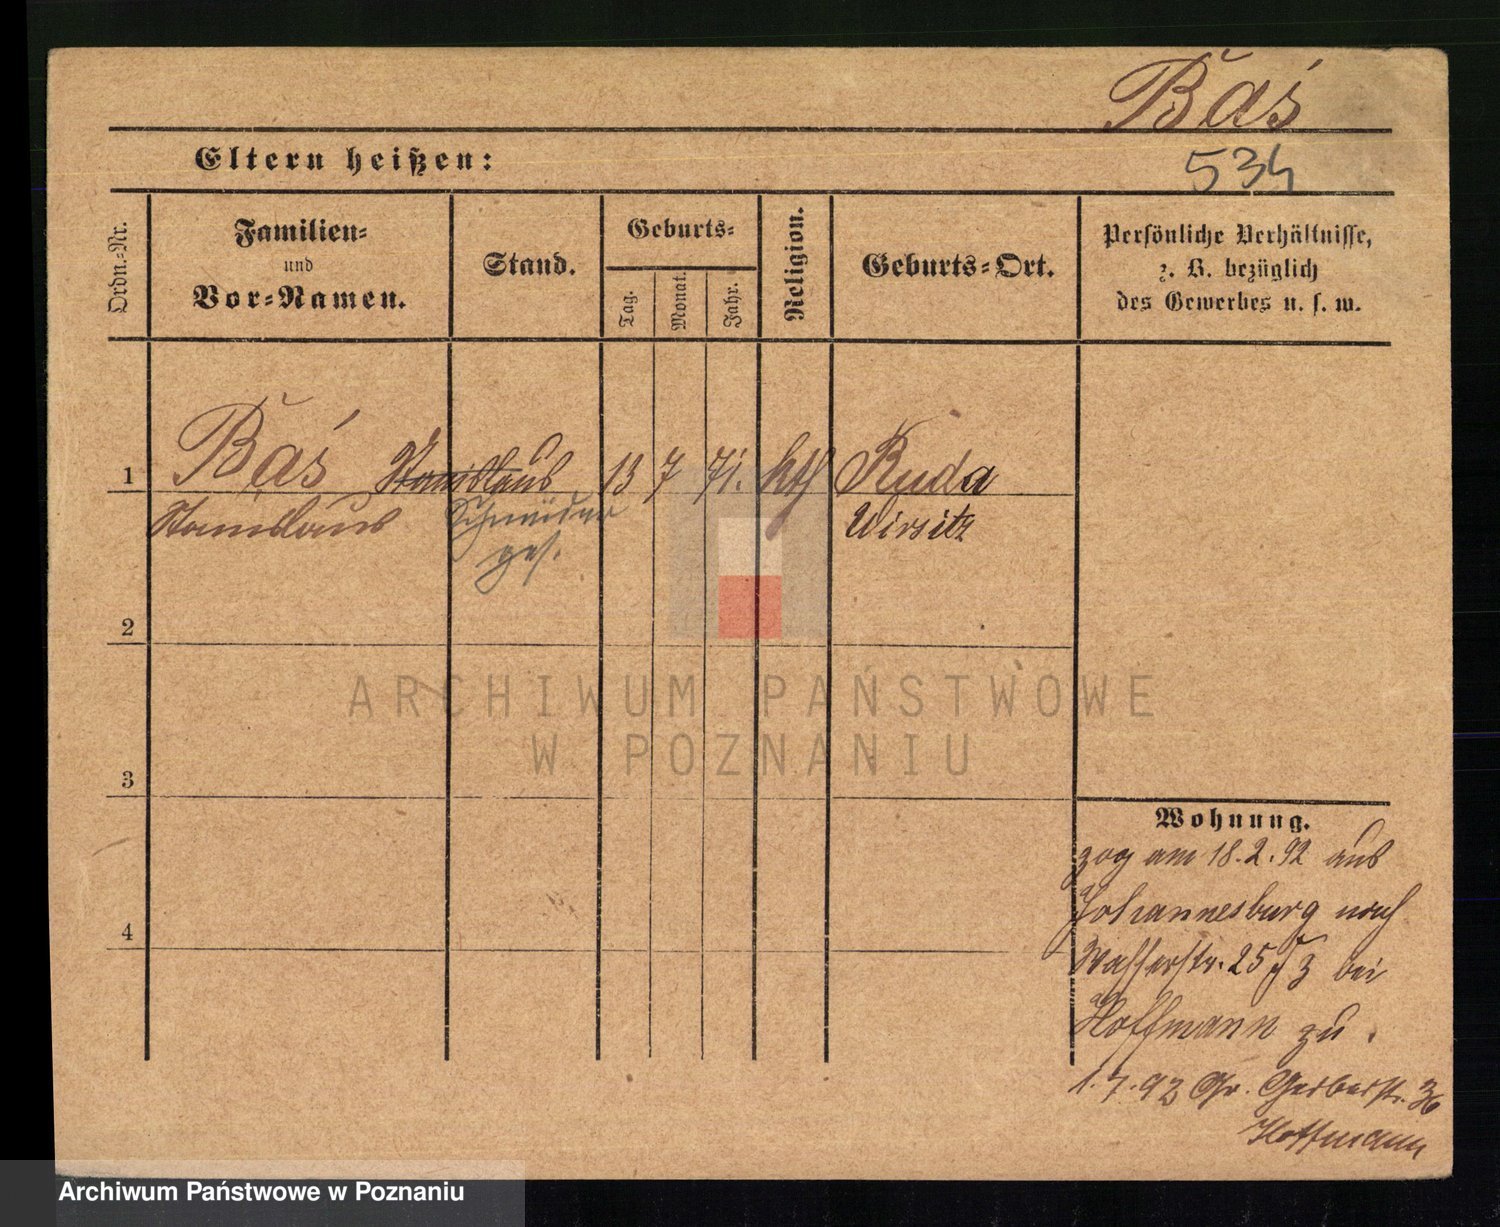 Baś
Eltern heißen:
534
Ordn.-Nr.
Familien-
und
Vor-Namen.
Stand.
Geburts-
Tag.
Monat.
Jahr.
Religion.
Geburts-Ort.
Persönliche Verhältnisse,
z. B. bezüglich
des Gewerbes u. s. w.
1 Baś Stanislaus 13 7 71. kth Ruda
Stanislaus Schneider Wirsitz
ges.
2
ARCHIWUM PAŃSTWOWE
W POZNANIU
3
Wohnung.
zog am 18.2.92 aus
Johannesburg nach
4
Wasserstr. 25 bei
Hoffmann zu.
1.7.92 Gr. Gerberstr. 36
Hoffmann
Archiwum Państwowe w Poznaniu